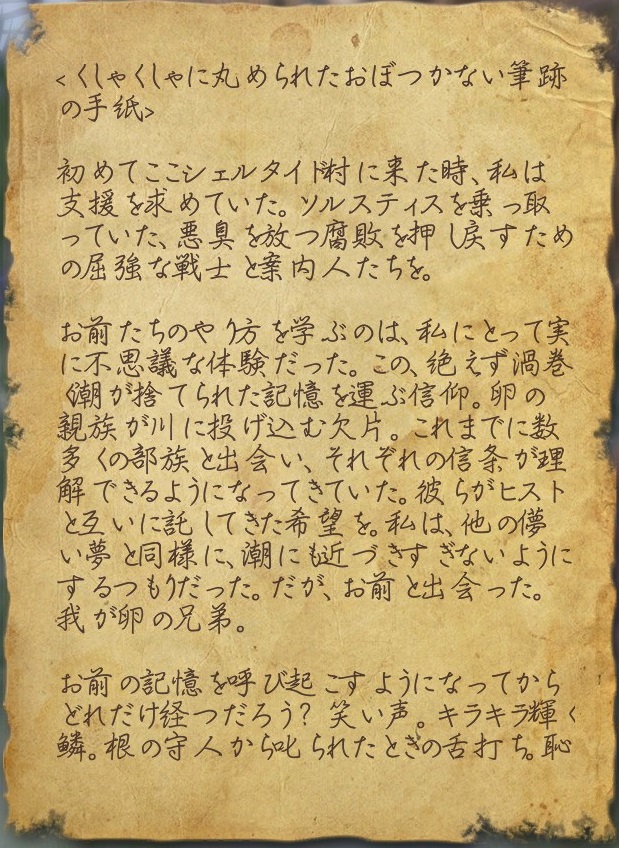 <くしゃくしゃに丸められたおぼつかない筆跡
の手紙>
初めてここシェルタイド村に来た時、私は
支援を求めていた。ソルスティスを乗っ取
っていた、悪臭を放つ腐敗を押し戻すため
の屈強な戦士と案内人たちを。
お前たちのやり方を学ぶのは、私にとって実
に不思議な体験だった。この、絶えず渦巻
く潮が捨てられた記憶を運ぶ信仰。卵の
親族が川に投げ込む欠片。これまでに数
多くの部族と出会い、それぞれの信条が理
解できるようになってきていた。彼らがヒスト
と互いに託してきた希望を。私は、他の儚
い夢と同様に、潮にも近づきすぎないように
するつもりだった。だが、お前と出会った。
我が卵の兄弟。
お前の記憶を呼び起こすようになってから
どれだけ経つだろう? 笑い声。キラキラ輝く
鱗。根の守人から叱られたときの舌打ち。恥